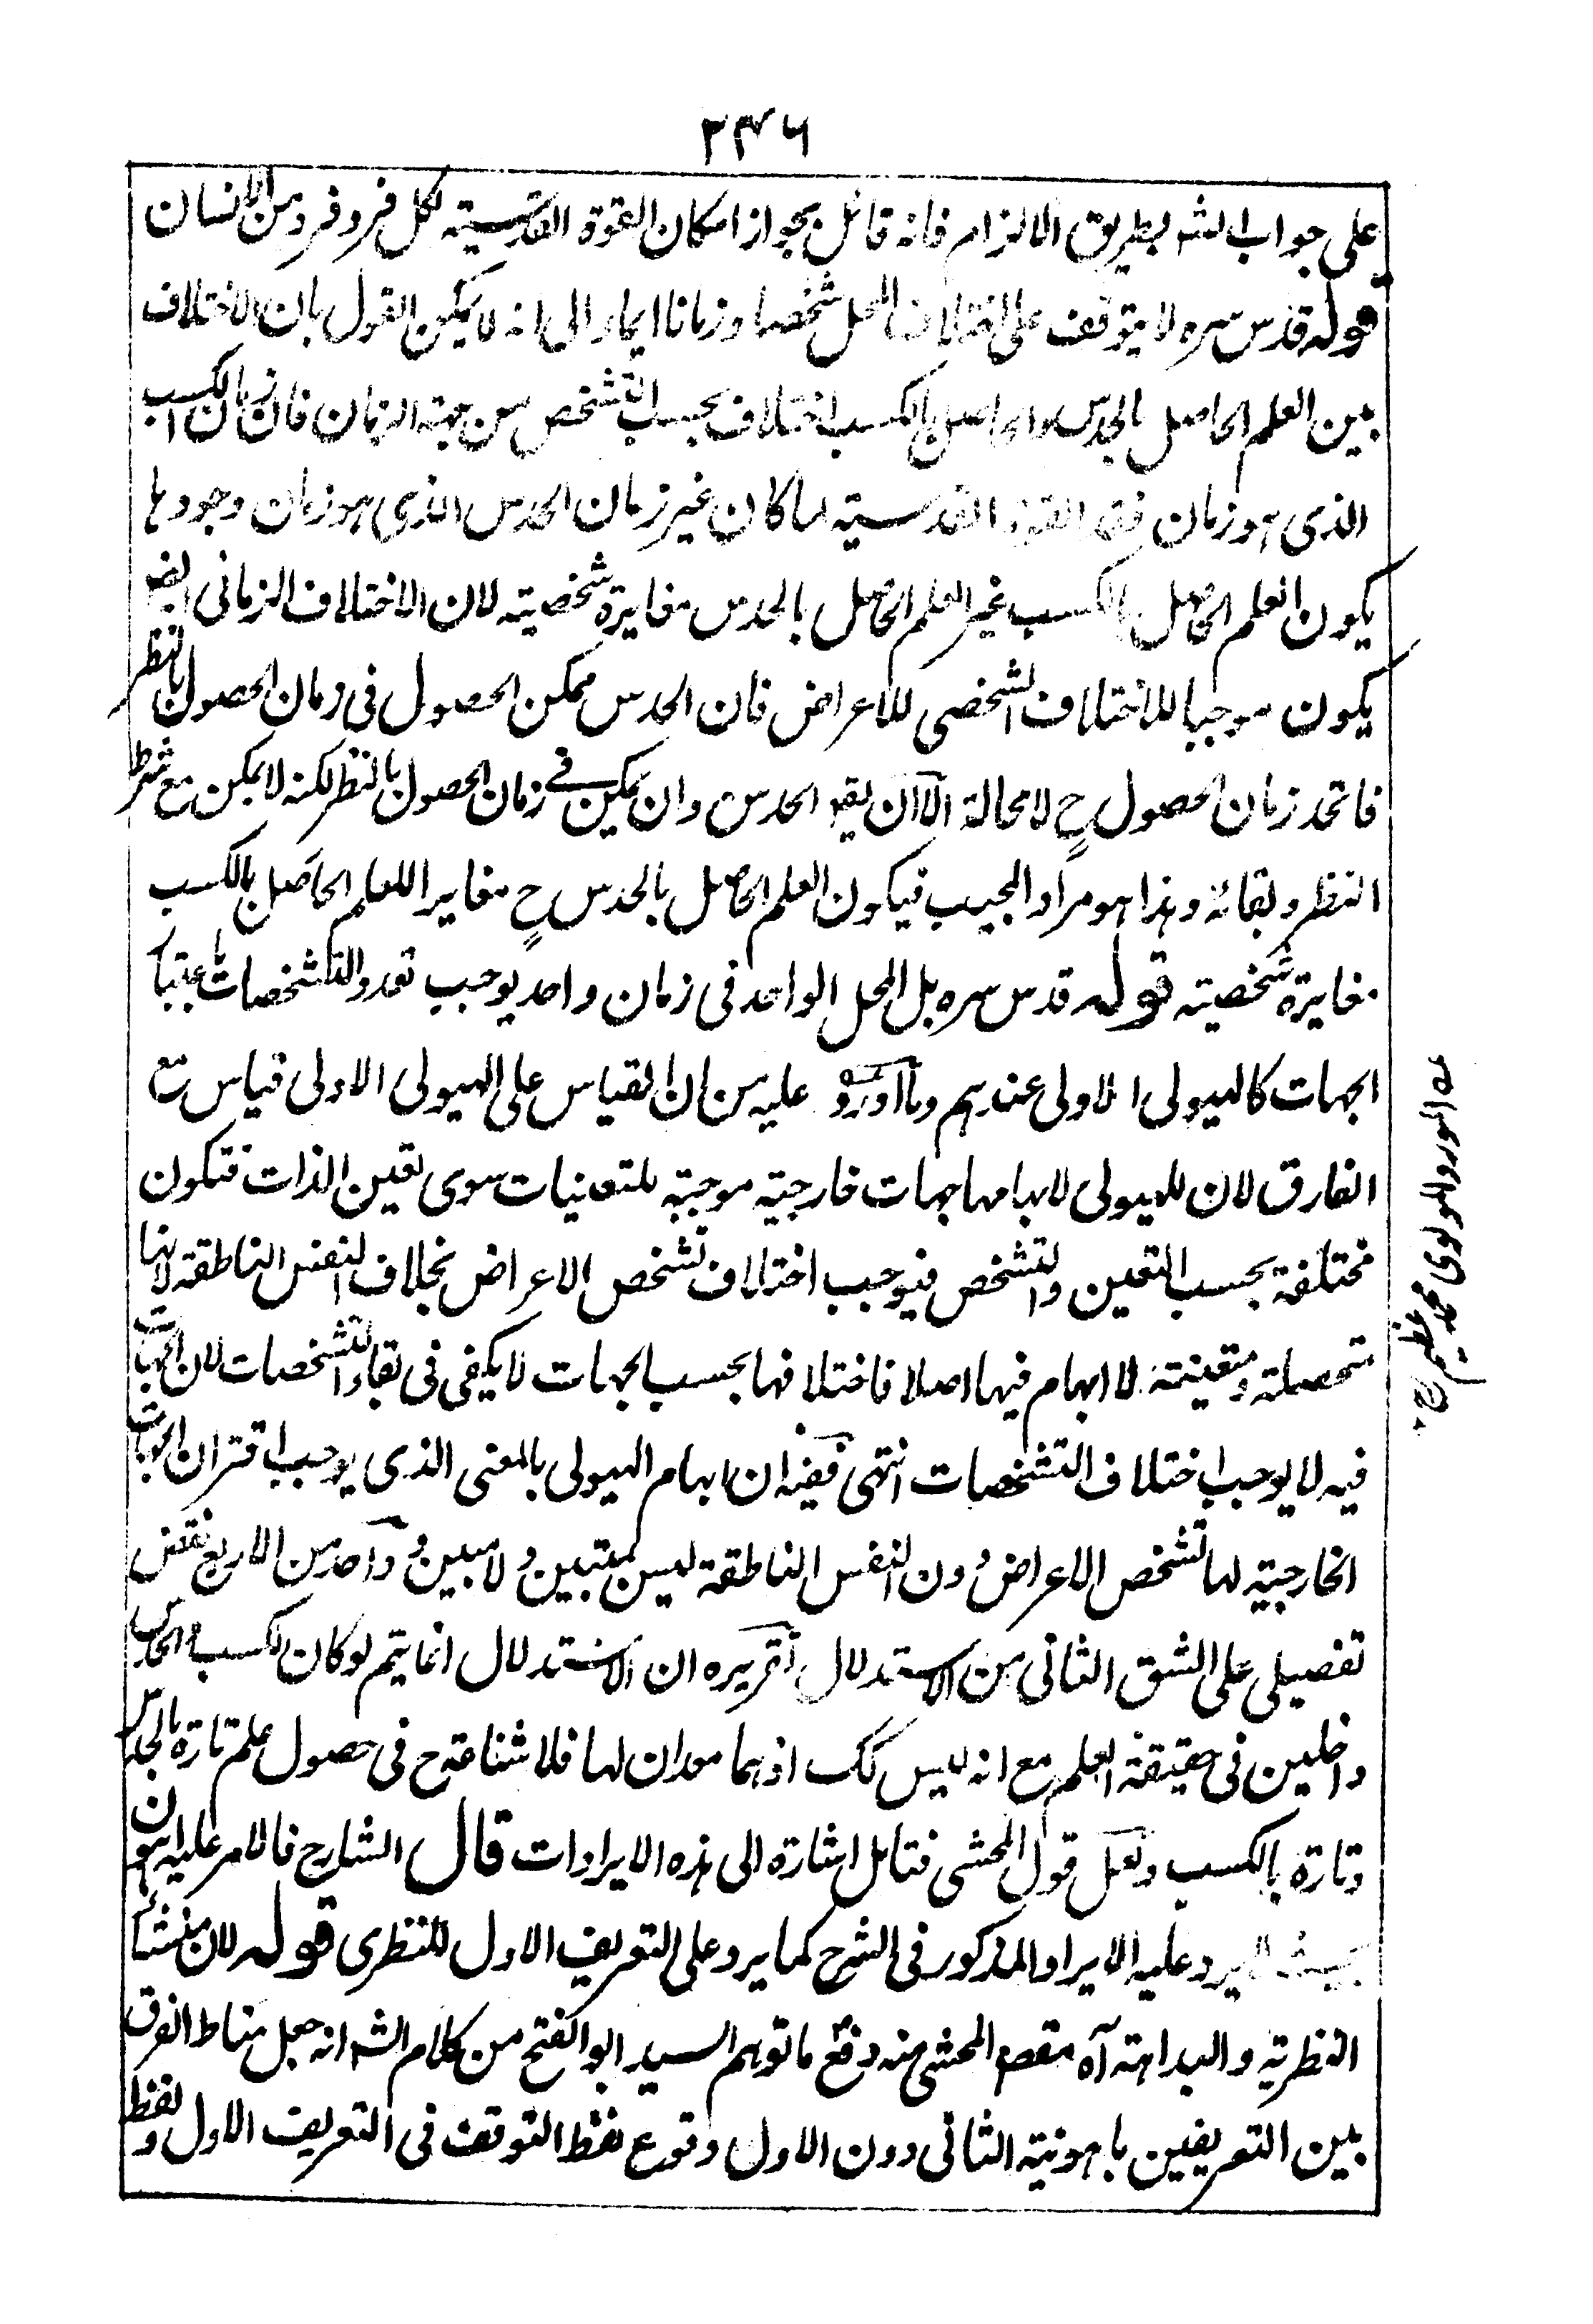 ٢٣٤٦
على جواب الشه بطريق الالزام فانه قائل بجواز امكان القوة القدسية لكل فرد فرد من الانسان
قوله قدس سره لا يتوقف على اختلاف المحل شخصا وزمانا ايماء الى انه لا يمكن القول بان الاختلاف
بين العلم الحاصل بالحدس والحاصل بالكسب اختلاف بحسب التشخص من جهة الزمان فان زمان الكسب
الذى هو زمان فقد القوة القدسية لما كان غير زمان الحدس الذى هو زمان وجودها
يكون العلم الحاصل بالكسب غير العلم الحاصل بالحدس مغايرة شخصية لان الاختلاف الزمانى ايضا
يكون موجبا للاختلاف الشخصى للاعراض فان الحدس ممكن الحصول فى زمان الحصول بالنظر
فاتحد زمان الحصول ح لا محالة الا ان يقه الحدس وان يمكن فى زمان الحصول بالنظر لكنه لا يمكن مع شرط
النظر وبقائه وهذا هو مراد المجيب فيكون العلم الحاصل بالحدس ح مغايرا للعلم الحاصل بالكسب
مغايرة شخصية قوله قدس سره بل المحل الواحد فى زمان واحد يوجب تعدد التشخصات باعتبار
الجهات كالهيولى الاولى عندهم وما اورد عليه من ان القياس على الهيولى الاولى قياس مع
الفارق لان للهيولى لابهامها جهات خارجية موجبة للتعينات سوى تعين الذات فتكون
مختلفة بحسب التعين والتشخص فيوجب اختلاف تشخص الاعراض بخلاف النفس الناطقة لانها
متحصلة ومتعينة لا ابهام فيها اصلا فاختلافها بحسب الجهات لا يكفى فى بقاء التشخصات لان الجهات
فيه لا يوجب اختلاف التشخصات انتهى ففيه ان ابهام الهيولى بالمعنى الذى يوجب اقتران الجهات
الخارجية لها تشخص الاعراض دون النفس الناطقة ليس بمتبين ولا مبين وواحد من الاربع نقض
تفصيلى على الشق الثانى من الاستدلال تقريره ان الاستدلال انما يتم لو كان الكسب والحدس
داخلين فى حقيقة العلم مع انه ليس كك اذ هما معدان لها فلا شناعة ح فى حصول علم تارة بالحدس
وتارة بالكسب ولعل قول المحشى فتامل اشارة الى هذه الايرادات قال الشارح فالامر عليه اهون
حيث لا يرد عليه الايراد المذكور فى الشرح كما يرد على التعريف الاول للنظرى قوله لان منشأ
النظرية والبداهة آه مقصو المحشى منه دفع ما توهم السيد ابو الفتح من كلام الشه انه جعل مناط الفرق
بين التعريفين باهونية الثانى دون الاول وقوع لفظ التوقف فى التعريف الاول ولفظ
عه المورد المولوى محمد عظيم رح